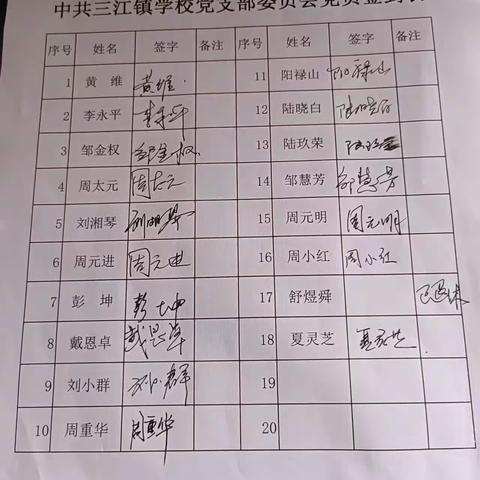 中共三江镇学校党支部委员会党员签到表
序号 姓名 签字 备注 序号 姓名 签字 备注
1 黄维 黄维 11 阳禄山 阳禄山
2 李永平 李永平 12 陆晓白 陆晓白
3 邹金权 邹金权 13 陆玖荣
4 周太元 周太元 14 邹慧芳 邹慧芳
5 刘湘琴 15 周元明 周元明
6 周元进 周元进 16 周小红 周小红
7 彭坤 彭坤 17 舒煜舜 已退休
8 戴恩卓 戴恩卓 18 夏灵芝 夏灵芝
9 刘小群 刘小群 19
10 周重华 周重华 20